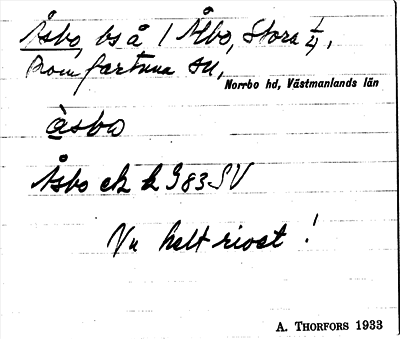 Åsbo, bs å 1 Åsbo, Stora 1/4,
Romfartuna sn,
Norrbo hd, Västmanlands län
àsbo
Åsbo ek h 983 SV
Nu helt rivet!
A. THORFORS 1933